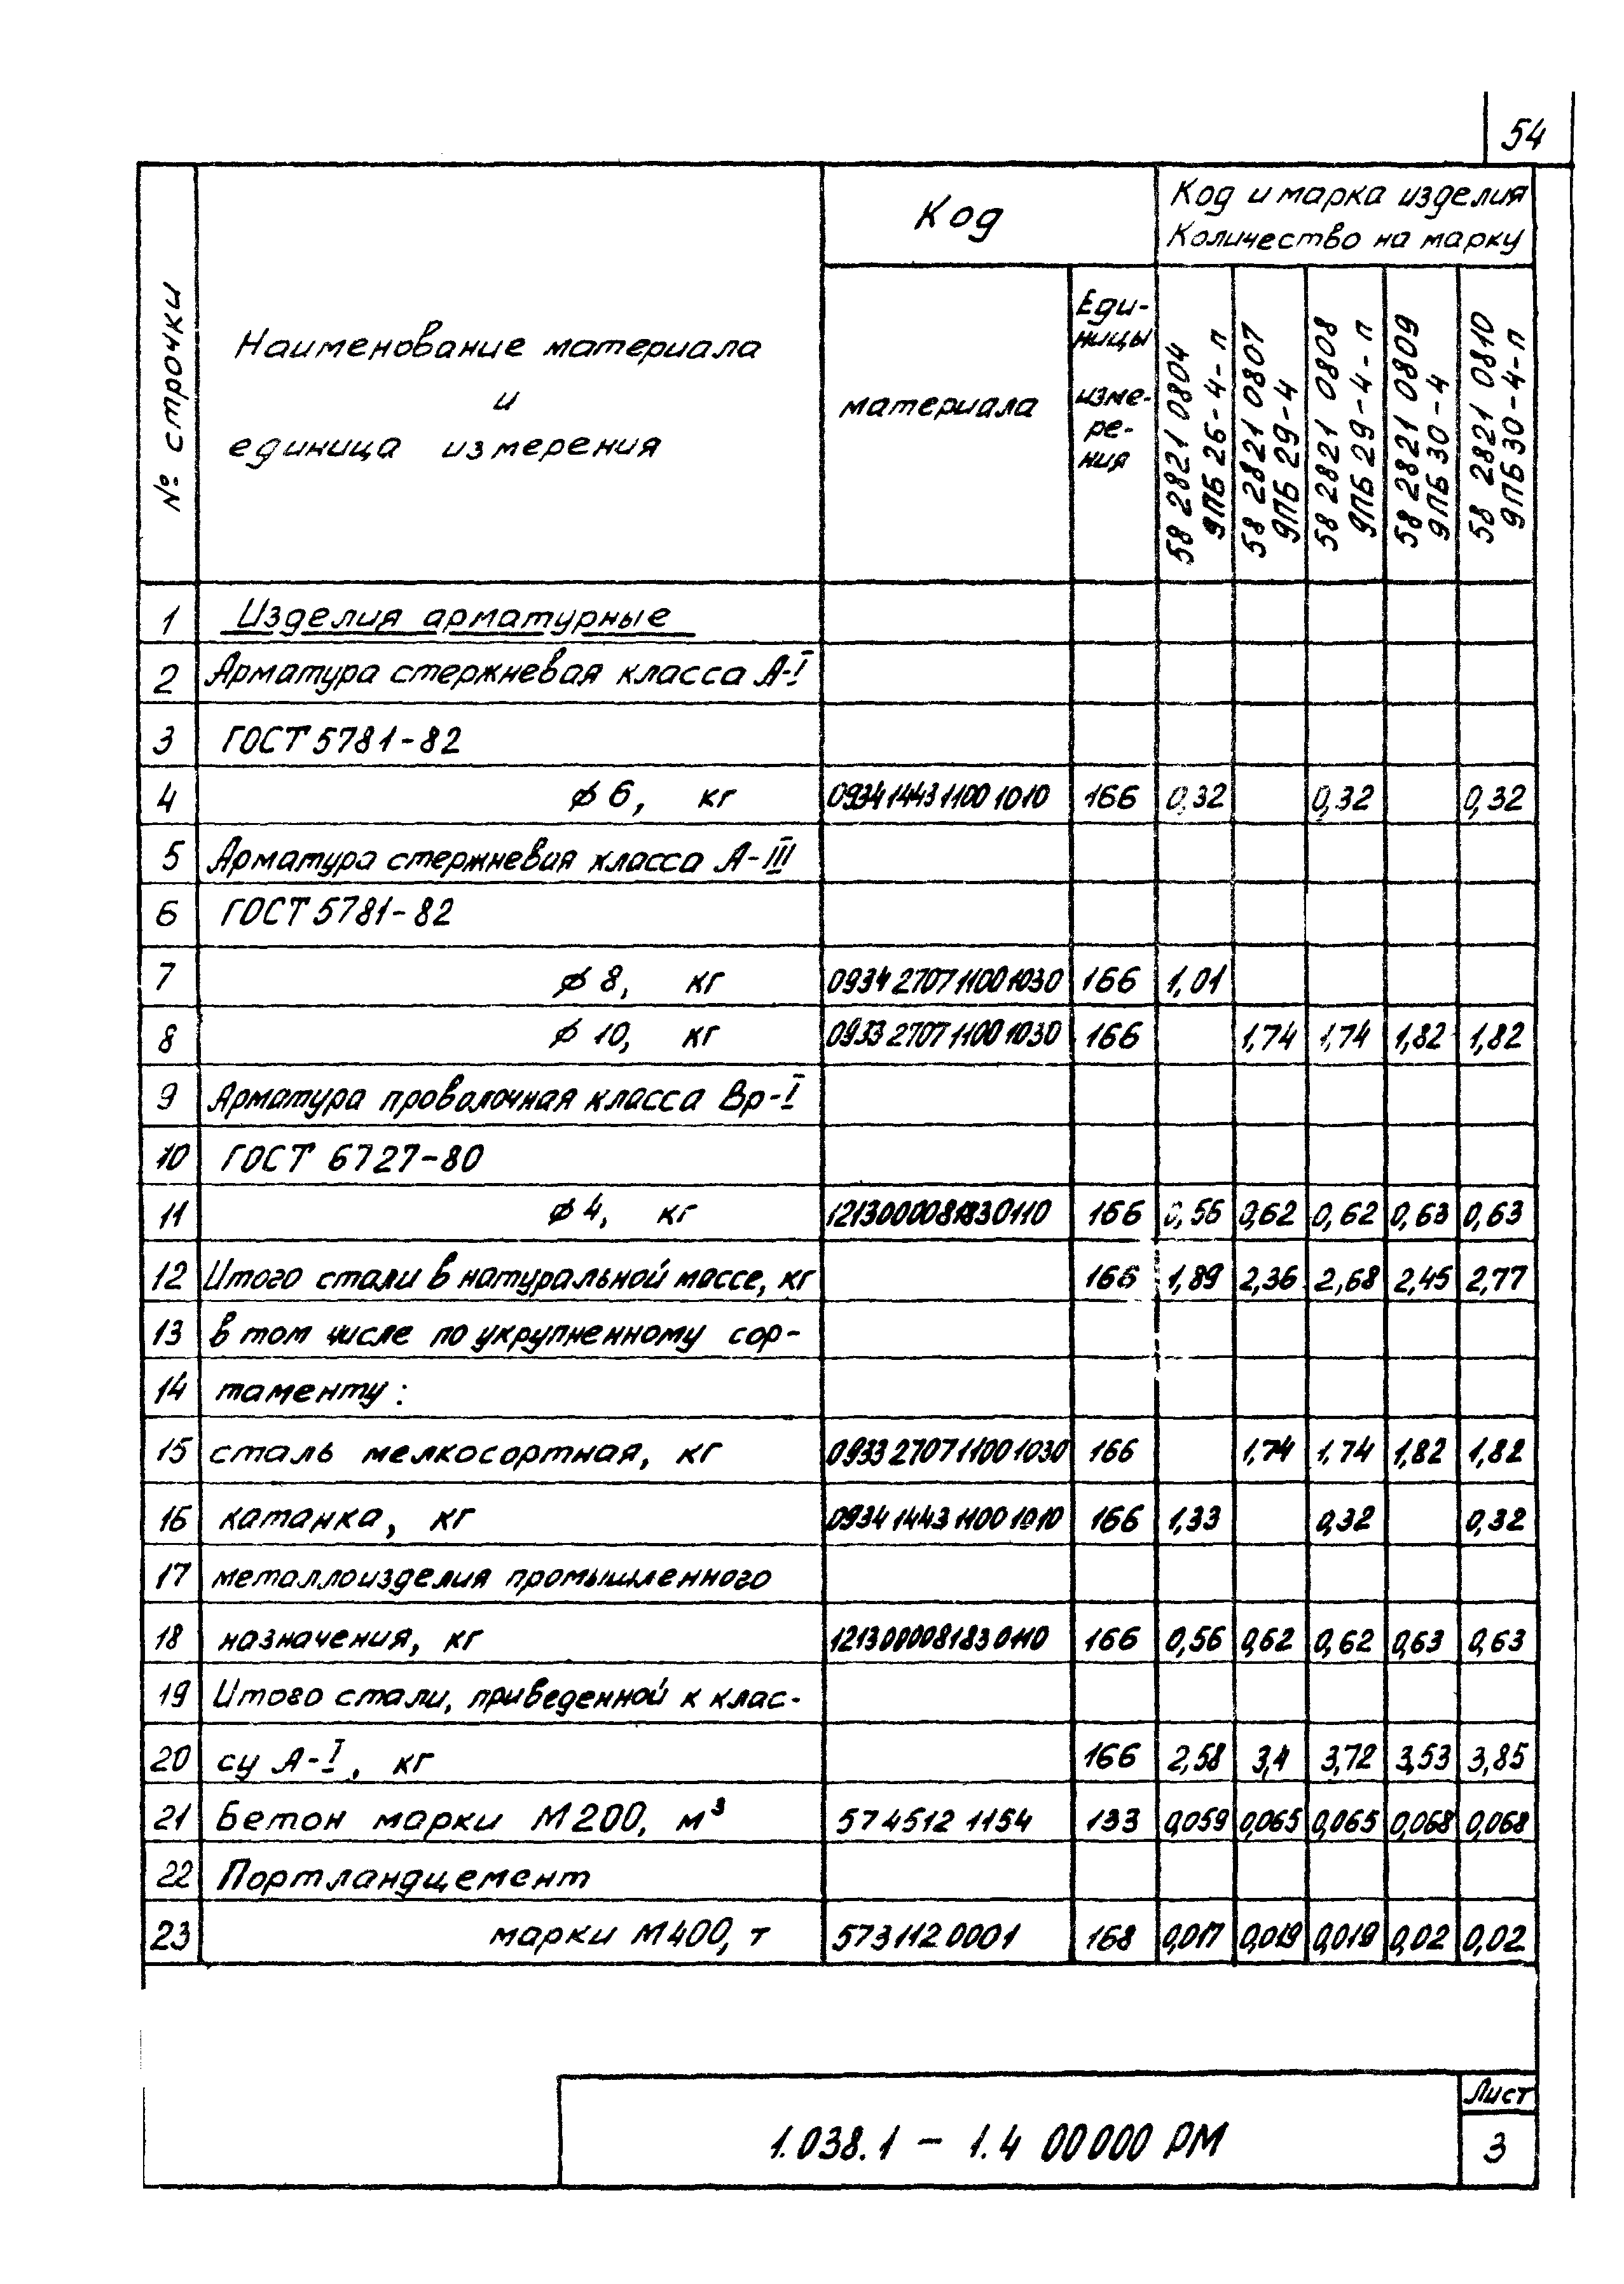 54
№ строчки
Наименование материала
и
единица измерения
Код
Код и марка изделия
Количество на марку
материала
Еди-
ницы
изме-
ре-
ния
58 2821 0804
9ПБ26-4-п
58 2821 0807
9ПБ 29-4
58 2821 0808
9ПБ 29-4-п
58 2821 0809
9ПБ 30-4
58 2821 0810
9ПБ30-4-п
1 Изделия арматурные
2 Арматура стержневая класса А-I
3 ГОСТ 5781-82
4 ø 6, кг 0934 1443 1100 1010 166 0,32 0,32 0,32
5 Арматура стержневая класса А-III
6 ГОСТ 5781-82
7 ø 8, кг 0934 2707 1100 1030 166 1,01
8 ø 10, кг 0933 2707 1100 1030 166 1,74 1,74 1,82 1,82
9 Арматура проволочная класса Вр-I
10 ГОСТ 6727-80
11 ø 4, кг 166 0,56 0,62 0,62 0,63 0,63
12 Итого стали в натуральной массе, кг 166 1,89 2,36 2,68 2,45 2,77
13 в том числе по укрупненному сор-
14 таменту:
15 сталь мелкосортная, кг 0933 2707 1100 1030 166 1,74 1,74 1,82 1,82
16 катанка, кг 0934 1443 1100 1010 166 1,33 0,32 0,32
17 металлоизделия промышленного
18 назначения, кг 1213000081830110 166 0,56 0,62 0,62 0,63 0,63
19 Итого стали, приведенной к клас-
20 су А-I, кг 166 2,58 3,4 3,72 3,53 3,85
21 Бетон марки М200, м³ 574512 1154 133 0,059 0,065 0,065 0,068 0,068
22 Портландцемент
23 марки М400, т 573112 0001 168 0,017 0,019 0,019 0,02 0,02
1.038.1 - 1.4 00000 РМ
Лист
3